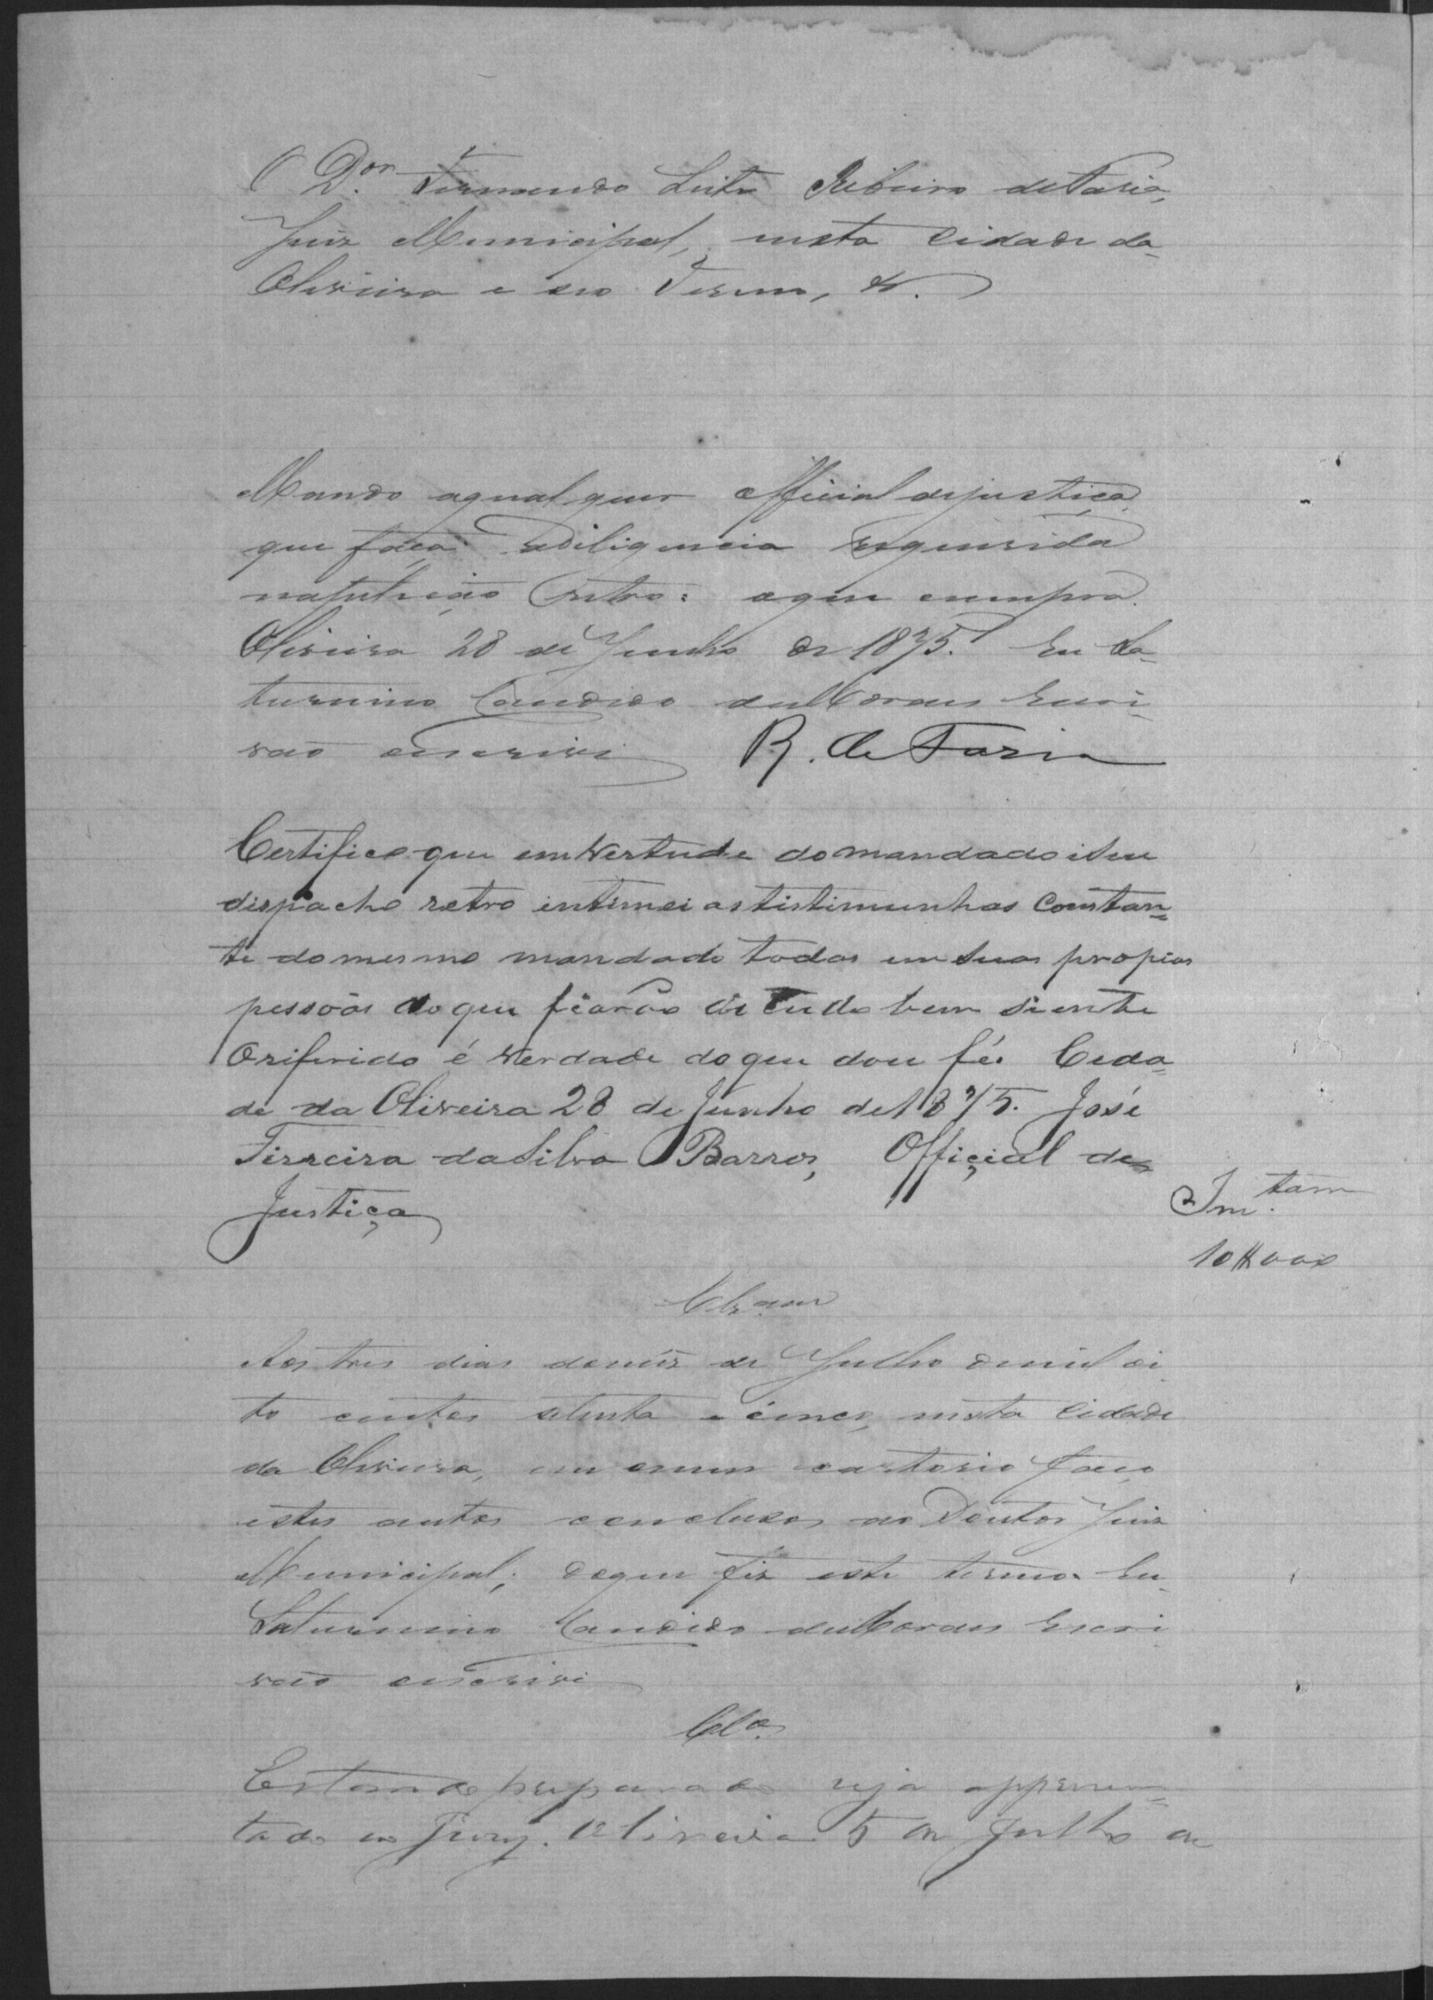 O D.or Fernando Leite Ribeiro de Faria,
Juiz Municipal, nesta cidade da
Oliveira e seo Termo, &.
Mando aqualquer official dejustiça,
que faça adiligencia requerida
napetição retro: oque cumpra.
Oliveira 28 de Junho de 1875. Eu Sa-
turnino Candido de Moraes Escri-
vão escrivi R. de Faria
Certifico que em Vertude do mandado e seu
dispacho retro intimei as tistimunhas Constan-
te do mesmo mandado todas em suas propias
pessôas do que ficarão de tudo bem siente
O riferido é Verdade do que dou fé. Cida-
de da Oliveira 28 de Junho de 1875. José
Firreira da Silva Barros, Official de
Justiça
10#000
Aos tres dias do mez de Julho de mil oi-
to centos setenta e cinco, nesta cidade
da Oliveira, em o meu cartorio faço
estes autos conclusos ao Doutor Juiz
Municipal; do que fiz este termo. Eu
Saturnino Candido de Moraes Escri-
vão escrivi
Cl.os
Estando preparado seja appresen-
tado ao Jury. Oliveira 5 de Julho de